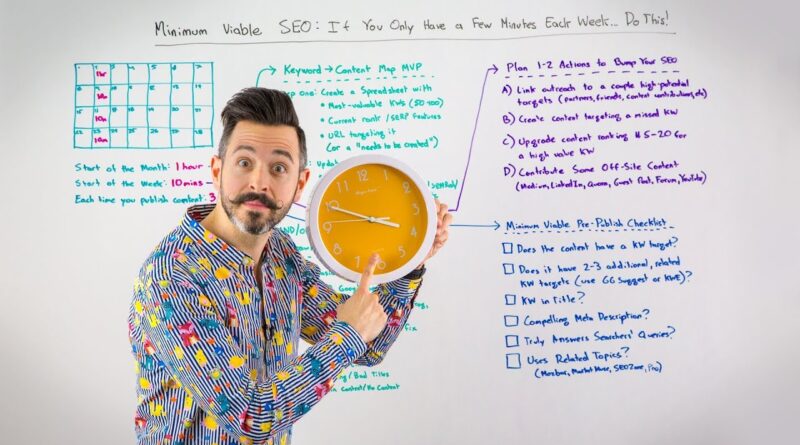 Minimum Viable SEO: If You Only Have a Few Minutes Each Week... Do This!
1hr
10m
10m
10m
Start of the Month: 1 hour
Start of the Week: 10 mins
Each time you publish content: 3
Keyword → Content Map MVP
one: Create a Spreadsheet with
• Most-valuable KWs (50-100)
• Current rank / SERP features
• URL targeting it
(or a "needs to be created")
AND/O
fix
/Bad Titles
Content/No Content
12
1
2
3
4
5
6
7
8
9
10
11
Plan 1-2 Actions to Bump Your SEO
A) Link outreach to a couple high-potential
targets (partners, friends, content contributions, etc)
B) Create content targeting a missed KW
C) Upgrade content ranking #5-20 for
a high value KW
D) Contribute Some Off-Site Content
(Medium, LinkedIn, Quora, Guest Post, Forum, YouTube)
Minimum Viable Pre-Publish Checklist
Does the content have a KW target?
Does it have 2-3 additional, related
KW targets (use GG Suggest or KWE)?
KW in Title?
Compelling Meta Description?
Truly Answers Searchers' Queries?
Uses Related Topics?
(MozBar, MarketMuse, SEOZone, Pro)